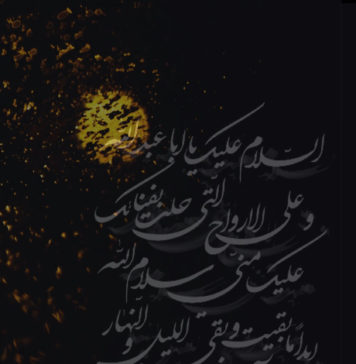 السلام علیک یا ابا عبدالله
و علی الارواح التی حلت بفنائک
علیک منی سلام الله
ابداً ما بقیت و بقی اللیل و النهار